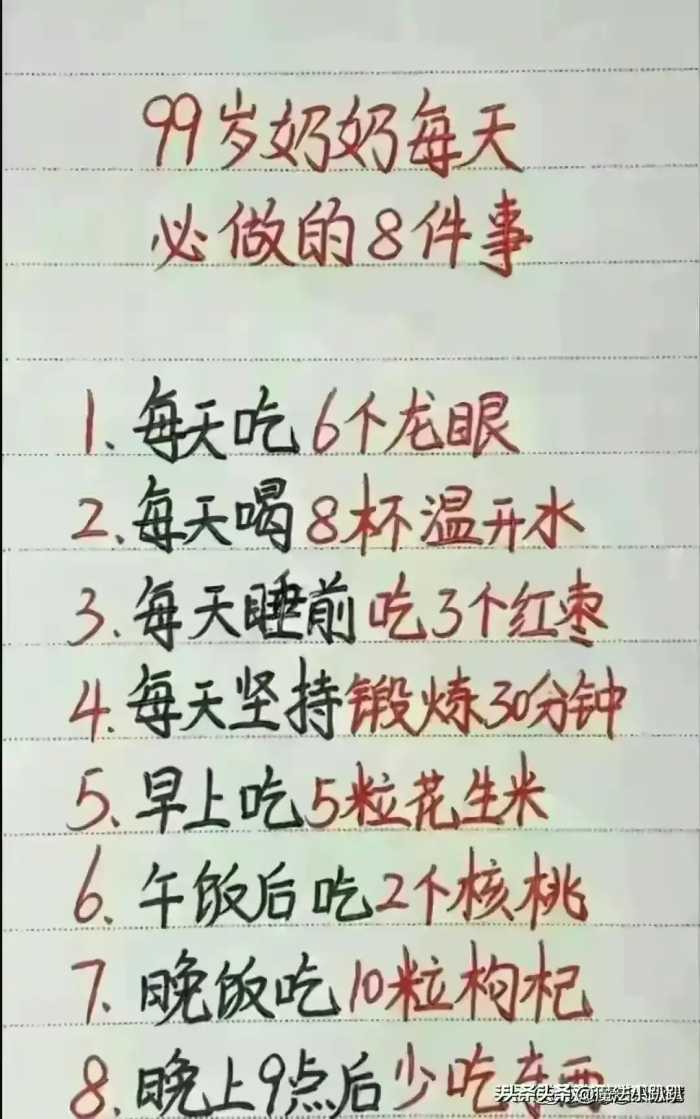 99岁奶奶每天
必做的8件事
1.每天吃6个龙眼
2.每天喝8杯温开水
3.每天睡前吃3个红枣
4.每天坚持锻炼30分钟
5.早上吃5粒花生米
6.午饭后吃2个核桃
7.晚饭吃10粒枸杞
8.晚上9点后少吃东西
头条@魔法小趴趴